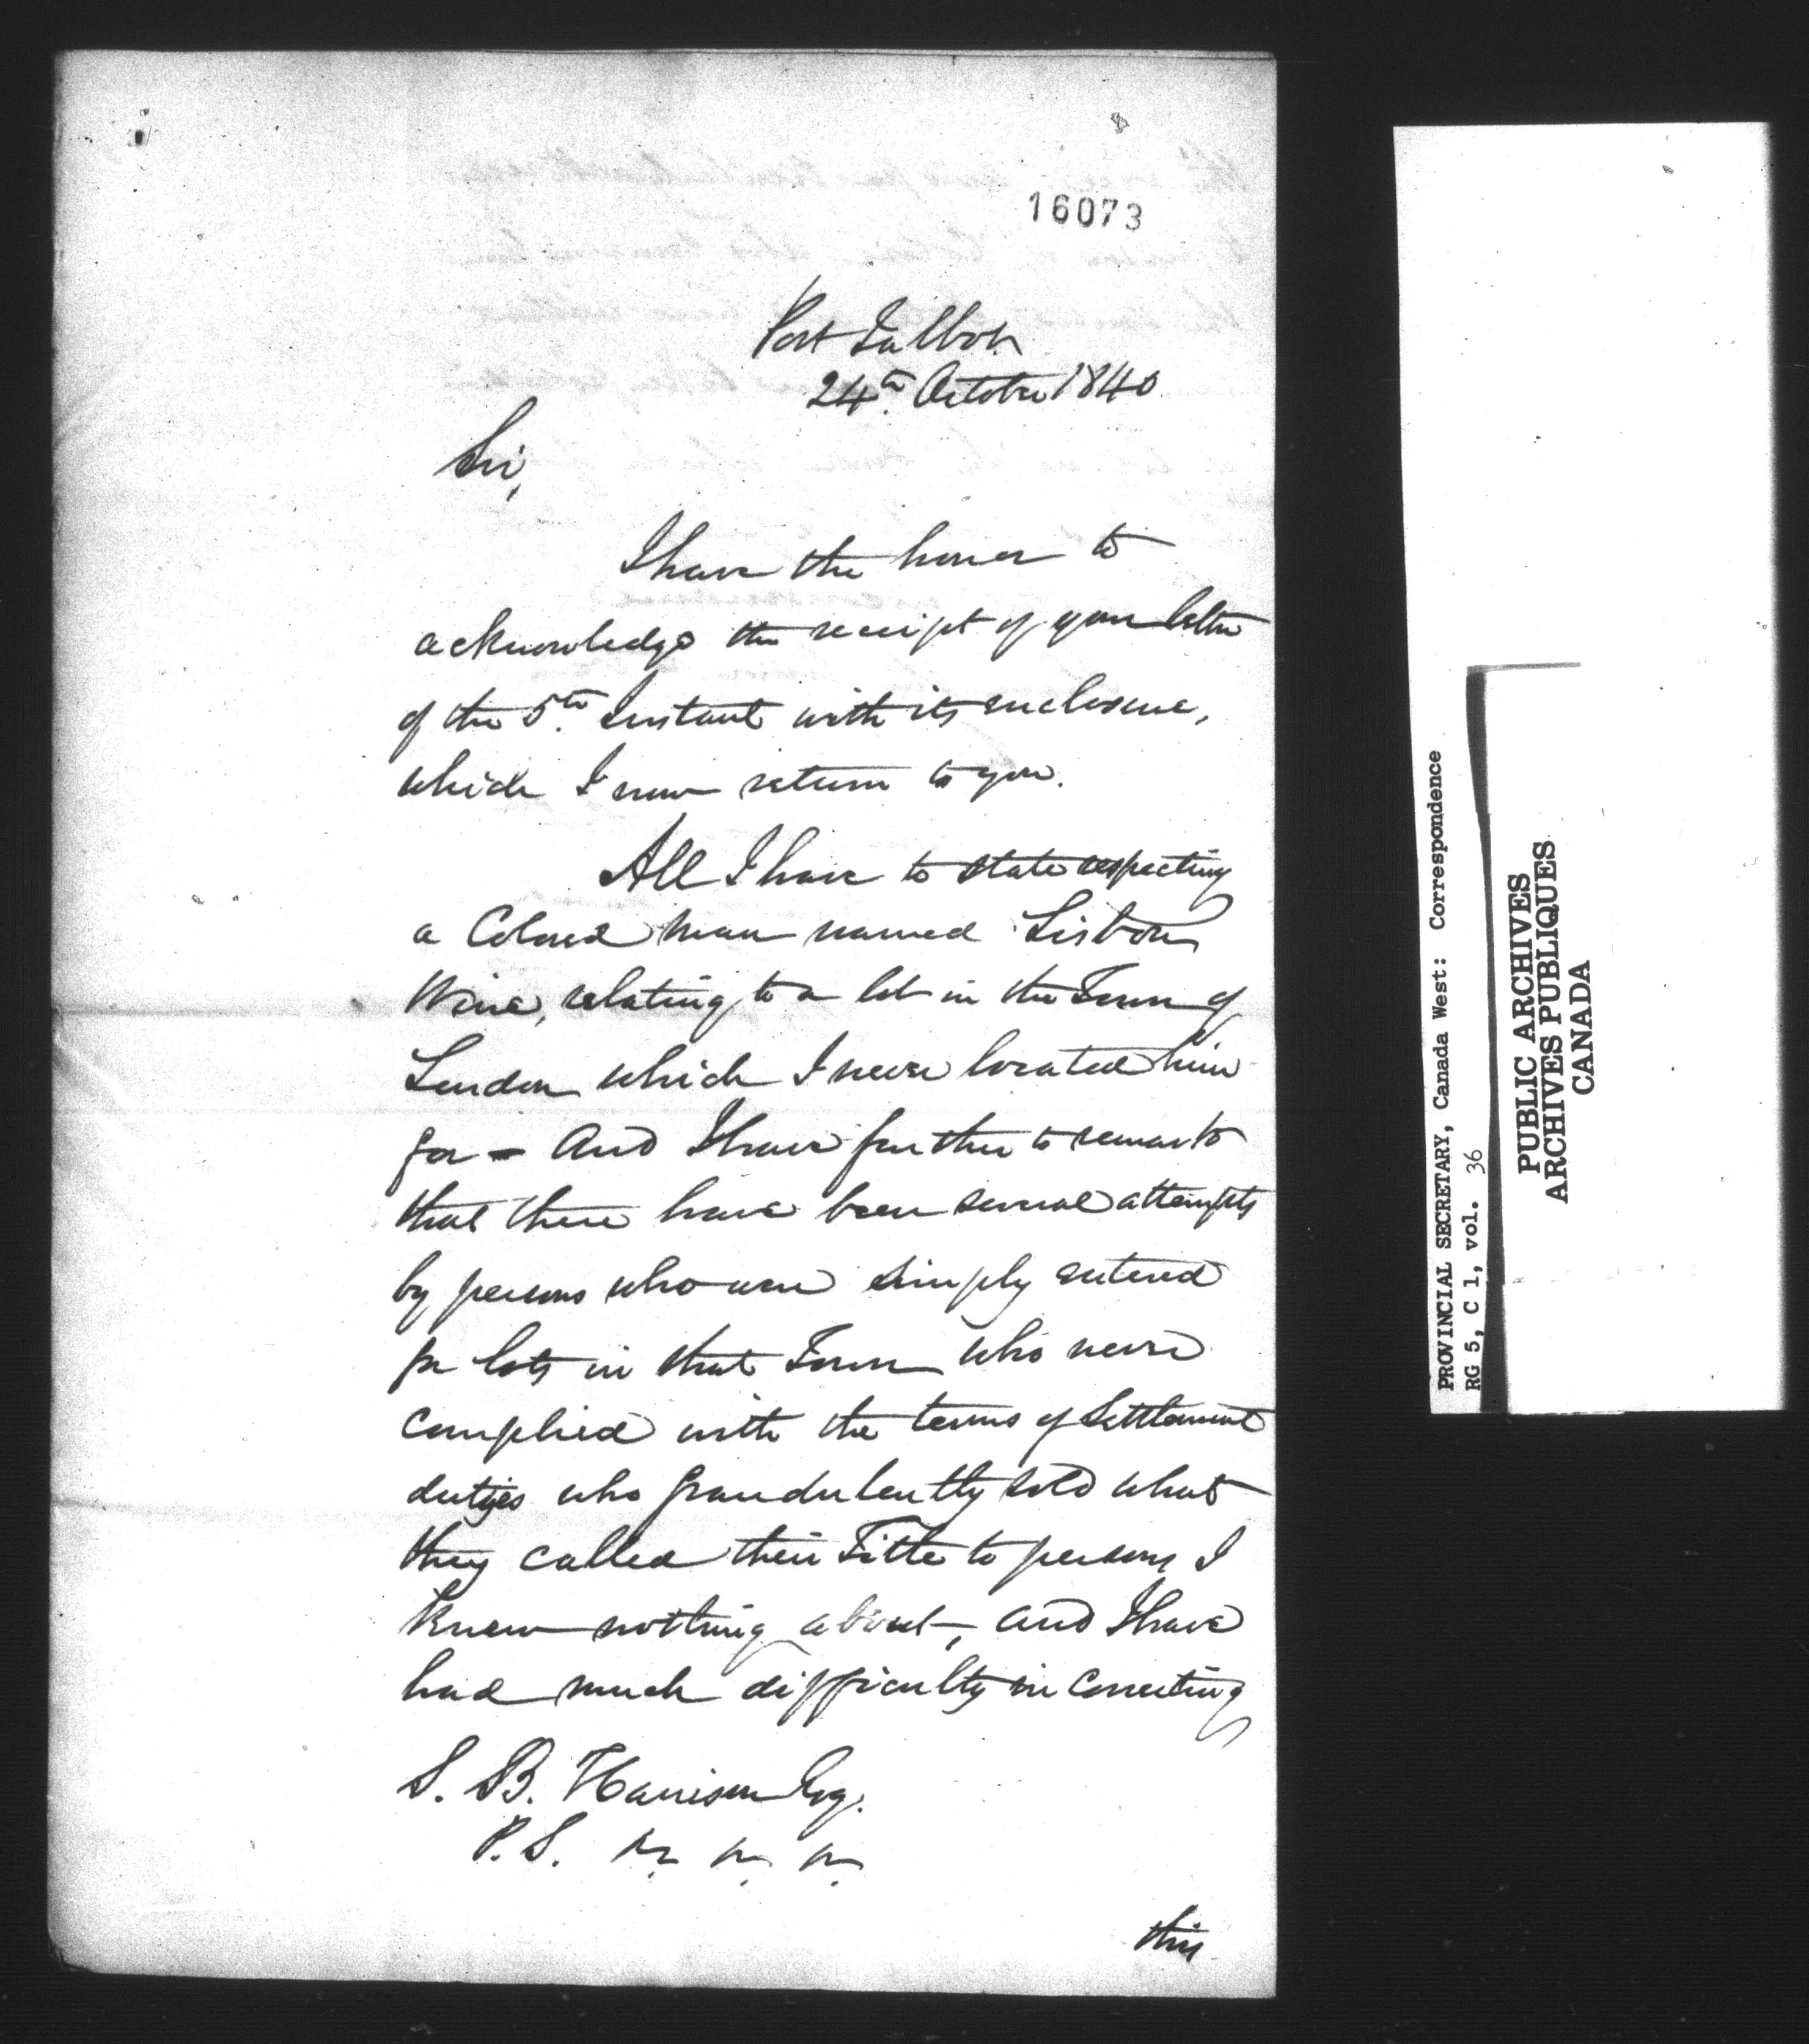 16073
Port Talbot
24th October 1840
Sir,
I have the honor to
acknowledge the receipt of your letter
of the 5th Instant with its enclosure,
which I now return to you.
All I have to state respecting
a Colored man named Lisbon
Wine, relating to a lot in the Town of
London which I never located him
for - And I have further to remark
that there have been several attempts
by persons who were simply entered
for lots in that Town who never
complied with the terms of Settlement
duties who fraudulently sold what
they called their Title to persons I
knew nothing about, and I have
had much difficulty in correcting
S. B. Harrison Esq.
P.S.
this
PROVINCIAL SECRETARY, Canada West: Correspondence
RG 5, C 1, vol. 36
PUBLIC ARCHIVES
ARCHIVES PUBLIQUES
CANADA